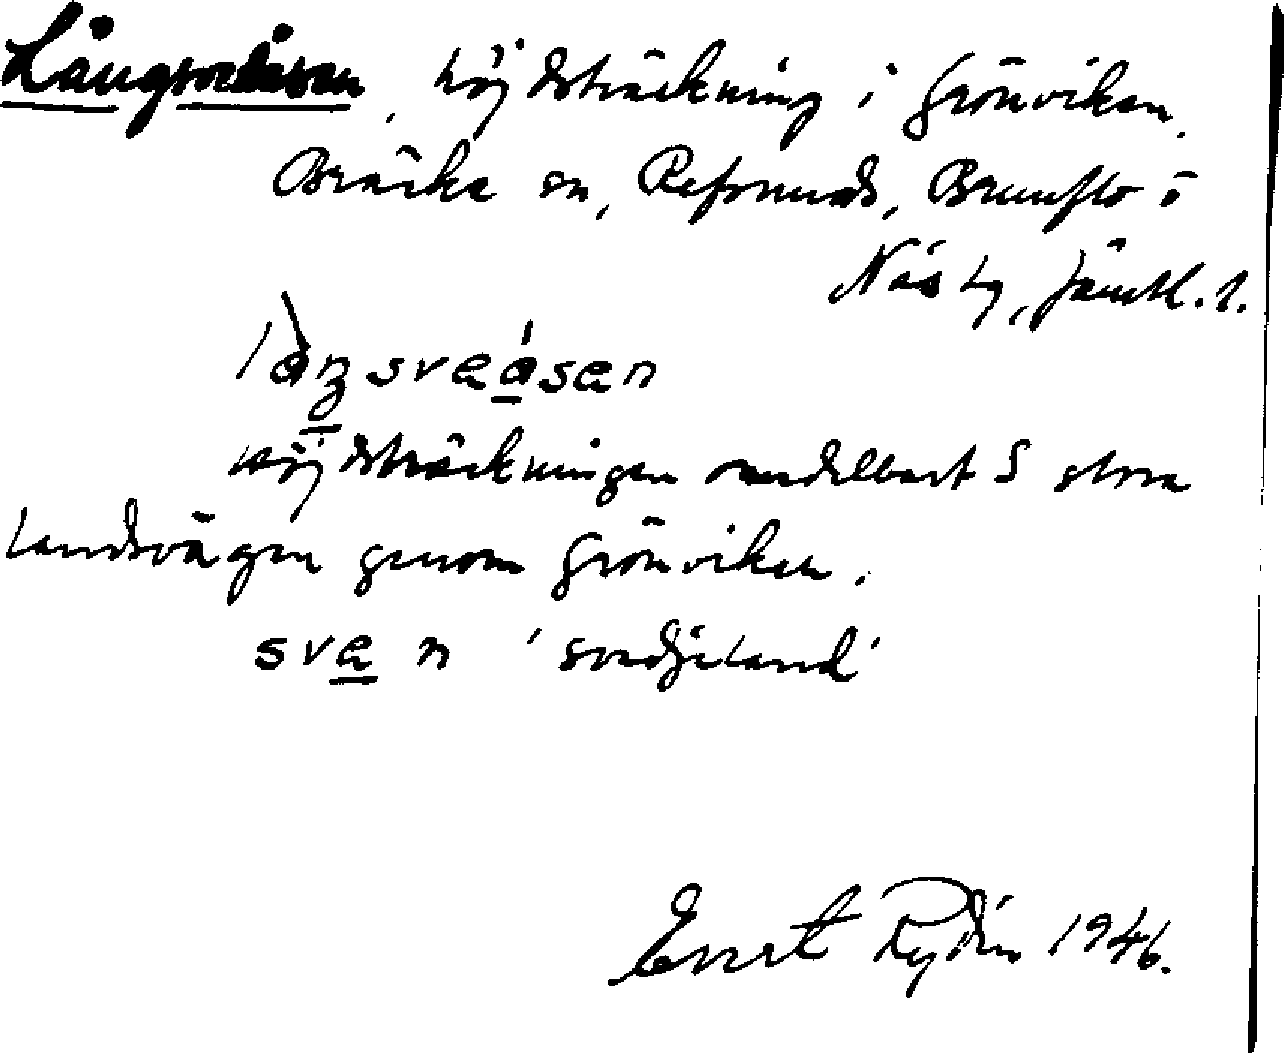 Långsveåsen, höjdsträckning i Grönviken,
Bräcke sn, Refsunds, Brunflo o
Näs tg, Jämtl. l.
làŋsveåsen
höjdsträckningen omedelbart S stora
landsvägen genom Grönviken.
sve n 'svedjeland'
Ernst Rydén 1946.